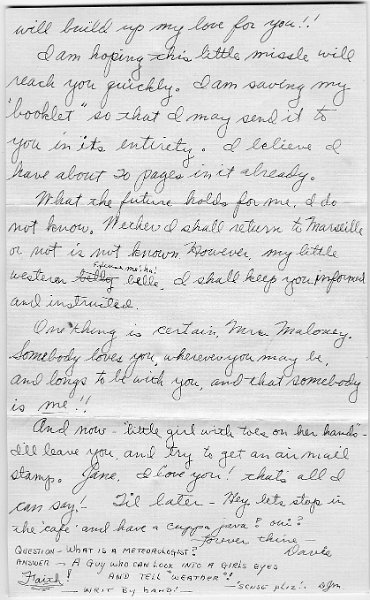 will build up my love for you!!
I am hoping this little missle will
reach you quickly. I am saving my
"booklet" so that I may send it to
you in its entirety. I believe I
have about 20 pages in it already.
What the future holds for me, I do
not know. Wether I shall return to Marseille
or not is not known. However, my little
excuse me! ha!
western belle, I shall keep you informed
and instructed.
One thing is certain, Mrs. Maloney.
Somebody loves you, wherever you may be,
and longs to be with you, and that somebody
is me!!
And now - "little girl with toes on her hands"-
I'll leave you, and try to get an air mail
stamp. Jane, I love you! that's all I
can say!- Til later - Hey, lets stop in
the 'cafe' and have a cuppa java? oui?
-forever thine-
Davie
QUESTION - WHAT IS A METEOROLOGIST?
ANSWER - A GUY WHO CAN LOOK INTO A GIRLS EYES
AND TELL "WEATHER"!
Flaich!
WRIT BY HAND!
-'SCUSE PLIZ'.-